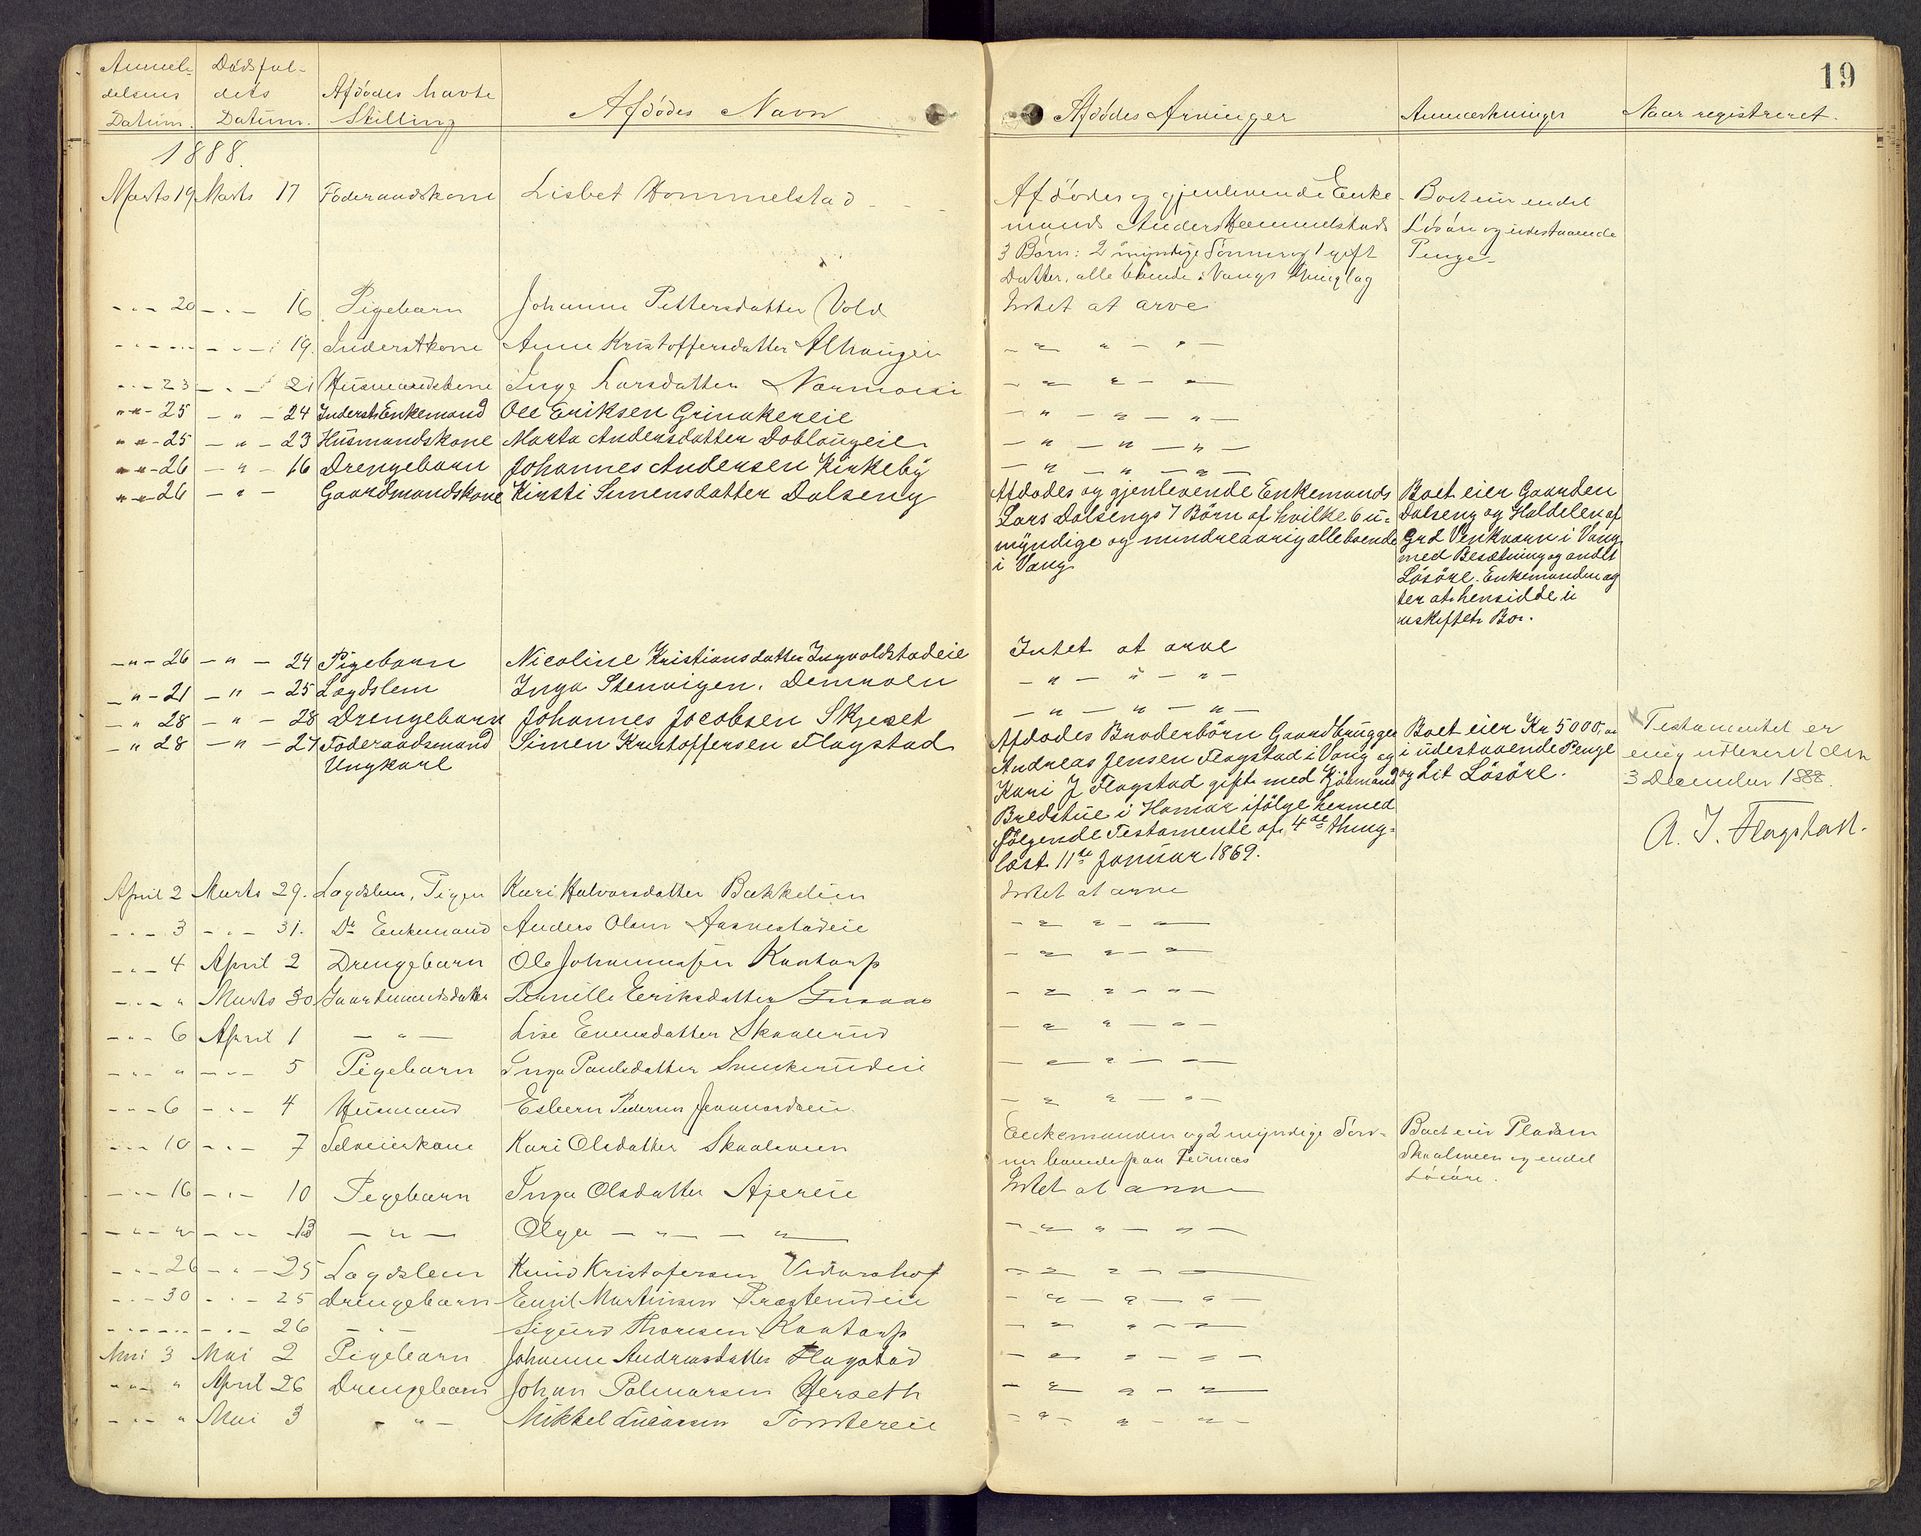 19
Anmel- Dødsfal-
delsens dets Afdødes havte
Datum. Datum. Stilling Afdødes Navn Afdødes Arvinger Anmærkninger Naar registreret.
1888.
Marts 19 Marts 17 Föderaadskone Lisbet Hommelstad - - - Afdødes og gjenlevende Enke- Boet eier endel
mands Anders Hommelstads Løsøre og udestaaende
3 Børn: 2 myndige Sønner og 1 gift Penge
Datter, alle boende i Vangs Thinglag
- " - 20 - " - 16 Pigebarn Johanne Pettersdatter Vold Intet at arve
- " - " - - " - 19. Inderstkone Anne Kristoffersdatter Alhaugen - " " - " -
- " - 23 - " - 21 Husmandskone Inge Larsdatter - " " - " -
" " - 25 - " - 24 Inderst. Enkemand Ole Eriksen Grinakereie - " - " - " -
" " - 25 - " - 23 Husmandskone Marta Andersdatter Doblougeie - " - " - " -
" " - 26 - " - 16 Drengebarn Johannes Andersen Kirkeby - " - " - " -
" " - 26 - " - Gaardmandskone Kirsti Simensdatter Dalseng Afdødes og gjenlevende Enkemands Boet eier Gaarden
Lars Dalsengs 7 Børn af hvilke 6 u- Dalseng og Haldelen af
myndige og mindreaarig alle boende Grd Venkvarn i Vang
i Vang med Besætning og andet
Løsøre. Enkemanden ag
ter at hensidde i
uskiftet Bo.
- " - 26 - " - 24 Pigebarn Nicoline Kristiansdatter Ingvoldstadeie Intet at arve
- " - 21 - " - 25 Lægdslem Inga Stenvigen. - " - " - " -
- " 28 - " - 28 Drengebarn Johannes Jacobsen Skjeset - " - " - " -
- " 28 - " - 27 Föderaadsmand Simen Kristoffersen Flagstad Afdødes Broderbörn Gaardbruger Boet eier Kr 5000, Testamentet er
Ungkarl Andreas Jensen Flagstad i Vang og i udestaaende Penge mig udleveret den
Kari J Flagstad gift med Kjøbmand og Lit Løsøre. 3 December 1888.
Bredstue i Hamar ifölge hermed
følgende Testamente af 4de thing- A. J. Flagstad.
læst 11te Januar 1869.
April 2 Marts 29. Lægdslem, Pigen Kari Halvorsdatter Bakkelien Intet at arve
- " - 3 - " - 31. Do Enkemand Anders Olsen Aasnestadeie - " " - " -
- " - 4 April 2 Drengebarn Ole Johannessen Kaatorp - " - " - " -
- " - " Marts 30 Gaardmandsdatter Pernille Eriksdatter - " " - " -
- " - 6 April 1 - " - Lise Evensdatter Skaalerud - " " - " -
- " - " - " - 5 Pigebarn Inga Paulsdatter - " " - " -
- " - 6 - " - 4 Husmand Esbern Pedersen - " " - " -
- " - 10 - " - 7 Selveierkone Kari Olsdatter Skaalveen Enkemanden og 2 myndige Søn- Boet eier Pladsen
ner boende paa Furnæs Skaalveen og endel
Løsøre.
- " - 16 - " - 10 Pigebarn Inga Olsdatter Ajereie Intet at arve
- " - " - " - 13 - " - Olga - " - " - " " - " -
- " - 26 - " - 25 Lægdslem Knud Kristofersen Vidarshof - " " - " -
- " - 30 - " - 25 Drengebarn Emil Martinsen Præsterudeie - " - " - " -
- " - " - - " - 26 - " - Sigurd Thoresen Kaatorp - " " - " -
Mai 3 Mai 2 Pigebarn Johanne Andreasdatter Flagstad - " " - " -
- " - " April 26 Drengebarn Johan Palmarsen Herseth - " " - " -
- " - " Mai 3 - " - Mikkel Tomtereie - " - " - " -